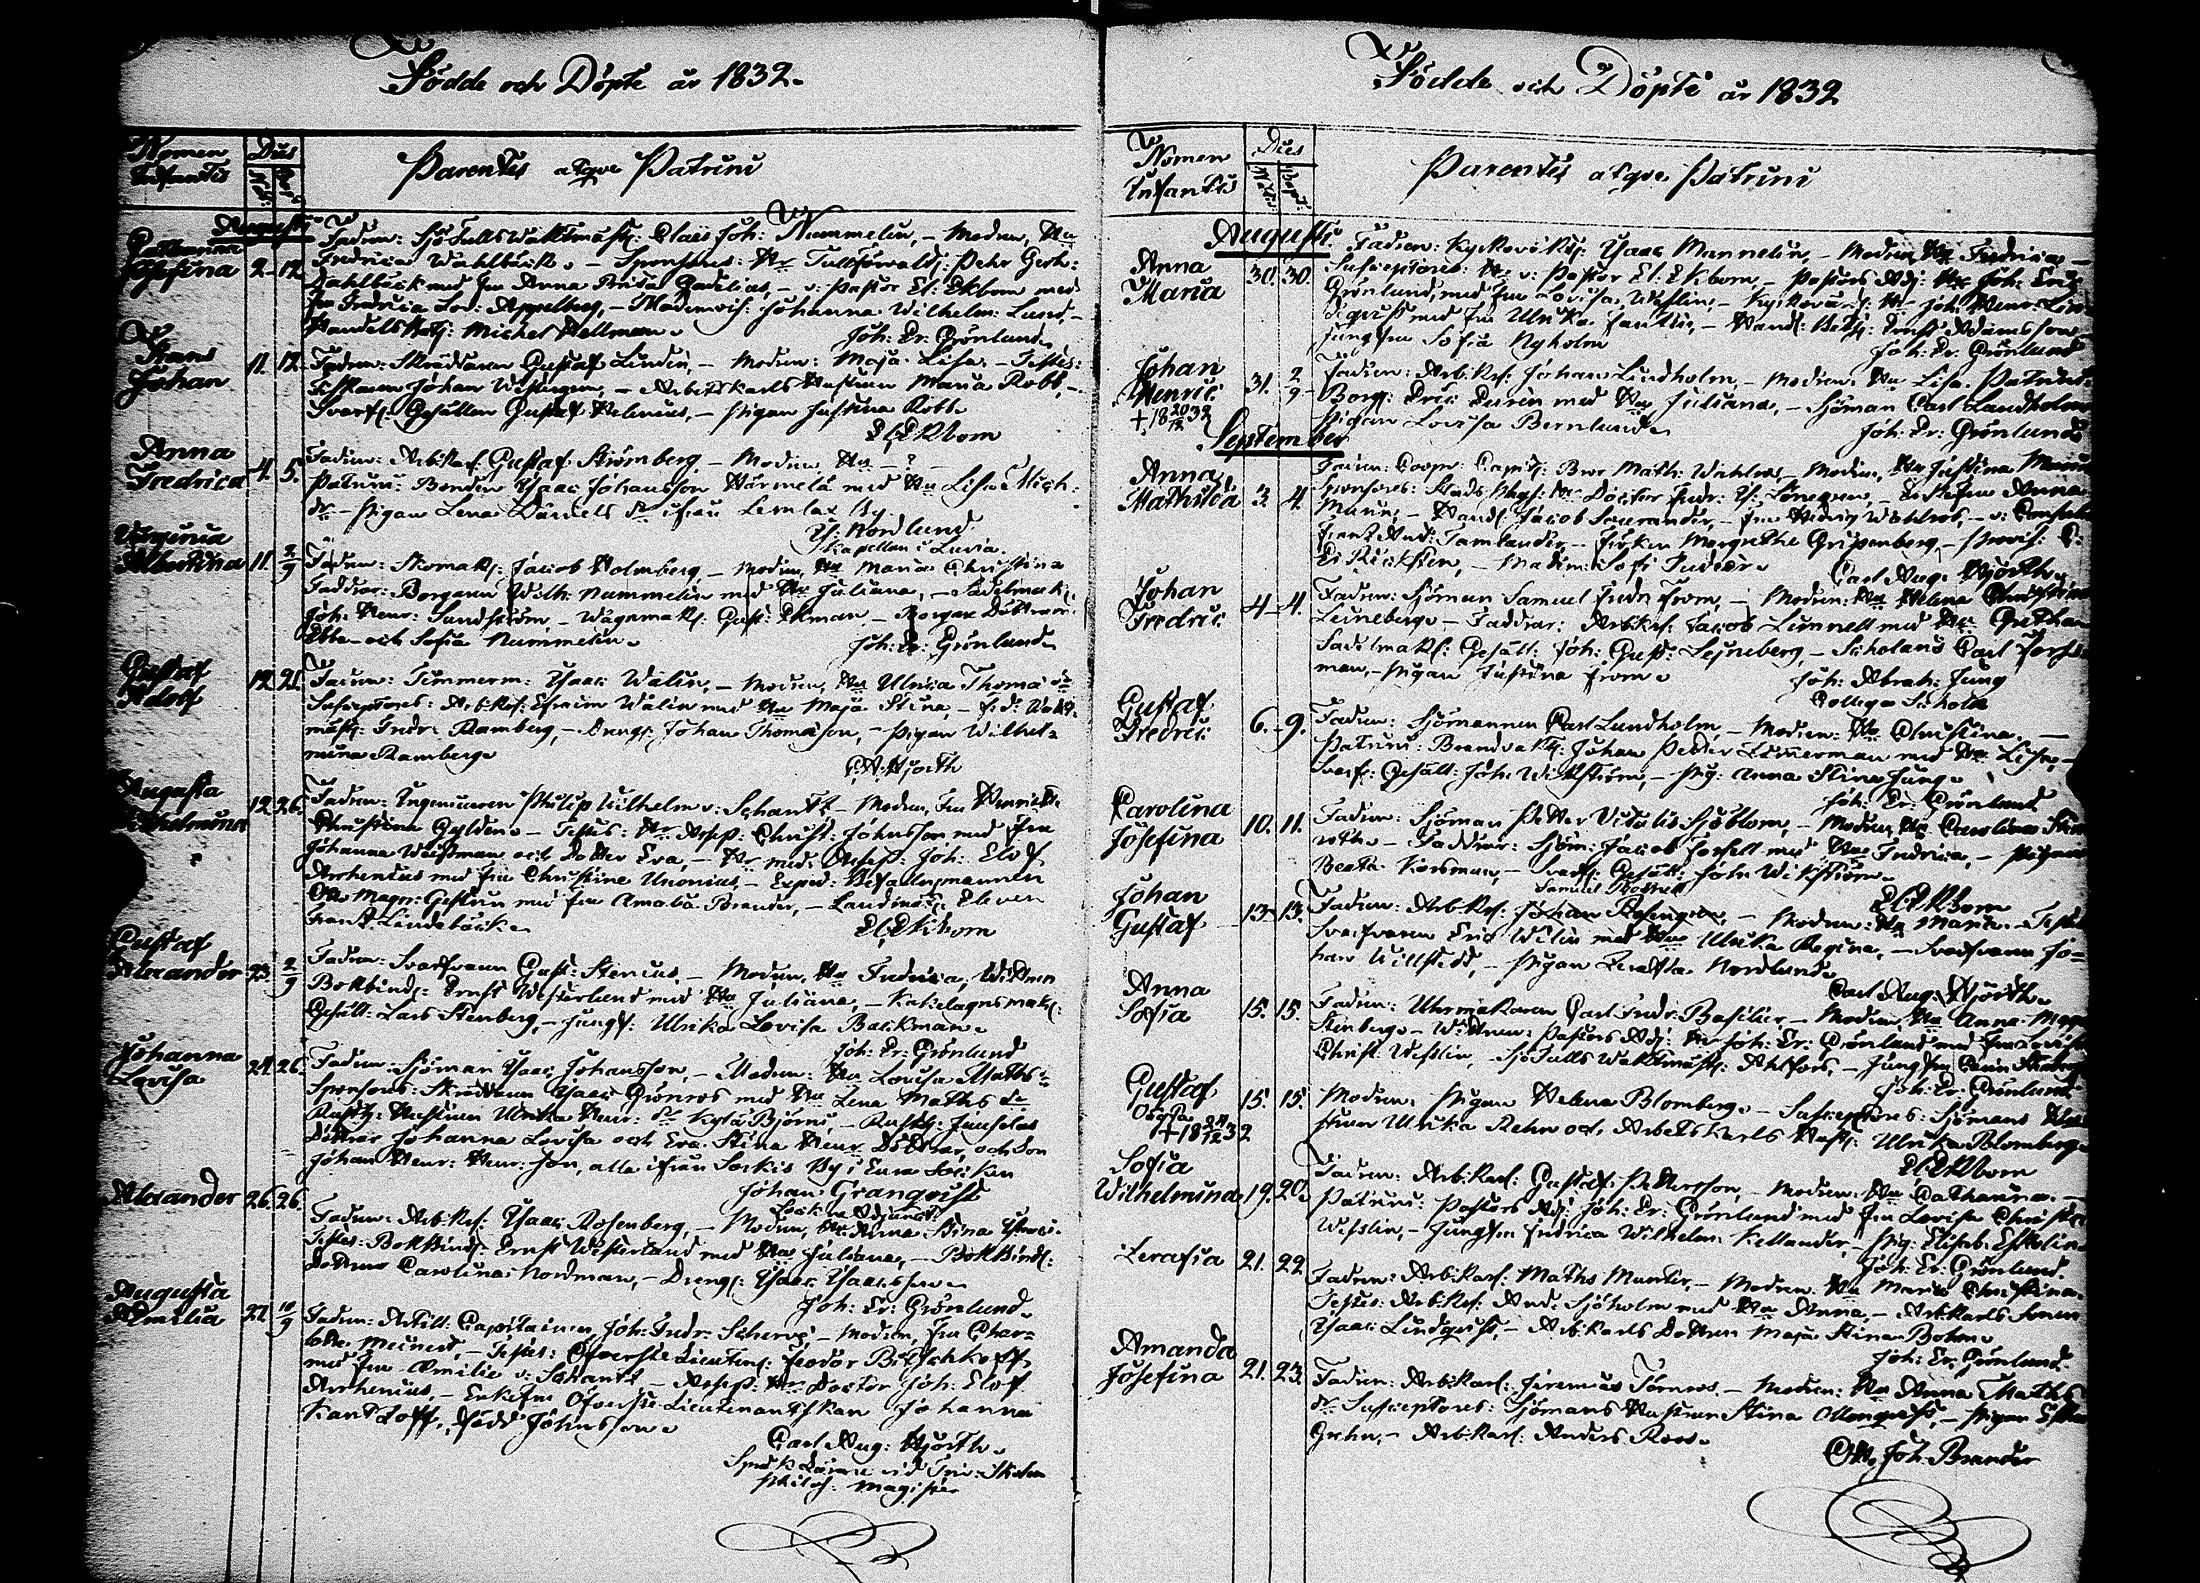 Födde och Döpte år 1832.
Nomen Infantis
Dies
Parentes atqve Patrini
Augusti
Josefina 2. 12.
Fadren: SjöTullsWaktmäst: Claës Joh: Nummelin, – Modren, Hu
Fredrica Wahlbäck. – Sponsores: Hr Tullförvalt: Pehr Gerh:
Dahlbäck med Fru Anna Brita – v: Pastor El: Ekbom med
Fru Fredrica Lov: Appelberg, – Mademois: Johanna Wilhelm: Lund, –
Handels Betj: Michel Hellman.
Joh: Er: Grönlund
Frans Johan 11. 12.
Fadren: Skräddaren Gustaf Lindén, – Modren: Maja Lisa. – Testes:
Johan – Arbetskarls Hustrun Maria Robb, –
Svarf: Gesällen Gustaf Helenius, – Pigan Justina Robb.
El Ekbom
Anna Fredrica 4. 5.
Fadren: Arb:Karl: Gustaf Strömberg, – Modren, Hu – ? –
Patrini: Bonden Ysaac Johansson Härmelä med Hu Lisa Mich:
dr – Pigan Lena Daniels dr ifrån Lemlax By.
Y: Nordlund
Kapellan i Luvia.
Virginia Albertina 11. 2/9
Fadren: Skomak: Jacob Holmberg, – Modren, Hu Maria Christina
Faddrar: Borgaren Wilh: Nummelin med Hu Juliana, – Sadelmak:
Joh: Henr: Sundström – Wagnmak: Gust: Ekman – Borgare Döttrar
Ebba och Sofia Nummelin.
Joh: Er: Grönlund
Gustaf Adolf 12. 21.
Fadren: Timmerm: Ysaac Walin, – Modren, Hu Ulrica Thomæ dr
Susceptores: Arb:Karl: Efraim Walin med Hu Maja Stina, – f:d: Wakt-
mäst: Fredr: Ramberg, – Dreng: Johan Thomasson, – Pigan Wilhel-
mina Ramberg.
CA Hjorth
Augusta Wilhelmina 12. 26.
Fadren: Ingenieuren Philip Wilhelm v: Schantz – Modren, Fru Henriette
Christine Gyldén. – Testes: Hr Assess: Christ: Johnsson med Fru
Johanna Weissman och Dotter Eva, – Hr Med: Assess: Joh: Elof
Arrhenius med Fru Christine Unonius, – Exped: Befallningsmannen
Otto Magn: Gestrin med Fru Amalia Brander, – Landtmät: Eleven
Frans Lindebäck.
El Ekbom
Gustaf Alexander 23. 2/9
Fadren: Svarfvaren Gust: Stenius, – Modren, Hu Fredrica, Witnen
Bokbind: Ernst Westerlund med Hu Juliana, – Kakelugnsmak:
Gesäll: Lars Stenberg, – Jungf: Ulrika Lovisa Backman.
Joh: Er: Grönlund
Johanna Lovisa 24. 26.
Fadren: Sjöman Ysaac Johansson, – Modren: Hu Lovisa Maths dr
Sponsores: Skräddaren Ysaac Grönros med Hu Lena Maths dr
Rusth: Hustrun Ulrika Henr: dr Kylä Björni, – Rusth: Junselas
Döttrar Johanna Lovisa och Eva Stina Henr Döttrar, och Son
Johan Henr: Henr: Son, alla ifrån Sorkis By i Eura Socken
Johan Granqvist
Loci Adjunct.
Alexander 26. 26.
Fadren: Arb:Karl: Ysaac Rosenberg, – Modren, Hu Anna Stina
Testes: Bokbind: Ernst Westerlund med Hu Juliana, – Bokbind:
Dottren Carolina Nordman, – Dreng: Ysaac Ysaacsson
Joh: Er: Grönlund
Augusta Emilia 27. 10/9
Fadren: Artill: Capitainen Joh: Fredr: Schervé – Modren, Fru Char-
lotte Meinert, – Testes: Öfverste Lieuten: Feodor
med Fru Emilie v: Schantz – Assess: Hr Doctor Joh: Elof
Arrhenius, – Enkefru Öfverste Lieutenantskan Johanna
född Johnsson.
Carl Aug: Hjorth.
Språk Lärare vid Triv: Skolan
Philos: Magister
Födde och Döpte år 1832
Nomen Infantis
Dies
Parentes atqve Patrini
Augusti
Anna Maria 30. 30.
Fadren: Kyrkovakt: Ysaac Mannelin, – Modren, Hu Fredrica –
Susceptores: Hr v: Pastor El: Ekbom, – Pastors Adj: Hr Joh: Eric
Grönlund, med Fru Lovisa Wesslin, –
med Fru Ulrika – Hand: Betj: Ernst Adamsson
Jungfru Sofia Nyholm
Joh: Er: Grönlund
Johan Henric 31. 2/9
+ 18 20/12 32
Fadren: Arb:Karl: Johan Lindholm, – Modren: Hu Lisa. Patrini:
Borg: Eric med Hu Juliana, – Sjöman Carl Landholm
Pigan Lovisa Bernlund.
Joh: Er: Grönlund
September
Anna Mathilda 3. 4.
Fadren: Coopv: Capit: Math: Wahlros, – Modren, Hu Justina Maria
Sponsores: Stads Doctor Fredr: Lönegren, – Enkefru Anna
Maria, – Hand: Jacob – Fru Hedvig Wahlros, – v: Consuln
Frans And: Tamlander, – Fröken Margretha Gripenberg,
– Madem: Sofi Indrén
Carl Aug: Hjorth
Johan Fredric 4. 4.
Fadren: Sjöman Samuel Fredr From, – Modren: Hu Helena Christina
Leineberg. – Faddrar: Arb:Karl: Jacob Linnell med Hu
Sadelmak: Gesäll: Joh: Gust: Lejneberg, – Scholaris Carl
man, – Pigan Justina From.
Joh: Abrah: Jung
Collega Scholæ
Gustaf Fredric 6. 9.
Fadren: Sjömannen Carl Lundholm, – Modren: Hu Christina. –
Patrini: Brandvakt: Johan Petter Zimmerman med Hu Lisa, –
Svarf: Gesäll: Joh: Wikström, – Pig: Anna Stina Jung.
Joh: Er: Grönlund
Carolina Josefina 10. 11.
Fadren: Sjöman Petter Vitalis Sjöblom, – Modren, Hu Carolina
– Faddrar: Sjöm: Jacob Forsell med Hu Fredrica, – Pigan
Beata Korsman, – Svarf: Gesäll: Joh: Wikström.
El Ekbom
Johan Gustaf 13. 13.
Samuel
Fadren: Arb:Karl: Johan Rosengren, – Modren: Hu Maria. Testes
Svarfvaren Eric Wilin med Hu Ulrika Regina, – Svarfvaren Jo=
han Willstedt, – Pigan Nordlund.
Carl Aug: Hjorth
Anna Sofia 15. 15.
Fadren: Uhrmakaren Carl Fredr: Basilier, – Modren, Hu Anna
Stenberg. – Witnen: Pastors Adj: Hr Joh: Er: Grönlund med Fru Lovisa
Christ: Wesslin, – SjöTulls Waktmäst: Ahlfors, – Jungfru
Joh: Er: Grönlund
Gustaf 15. 15.
+ 18 12 32
Modren: Pigan Helena Blomberg. – Susceptores: Sjömans
Ulrika Rehn och Arbetskarls Hust: Ulrika Blomberg
El Ekbom
Sofia Wilhelmina 19. 20.
Fadren: Arb:Karl: Gustaf Pettersson, – Modren: Hu Catharina. –
Patrini: Pastors Adj: Joh: Er: Grönlund med Fru Lovisa Christ:
Wesslin, – Jungfru Fredrica Wilhelm: Kellander, – Pig: Elisab: Eskolin
Joh: Er: Grönlund
Serafia 21. 22.
Fadren: Arb:Karl: Maths Munter, – Modren: Hu Maria Christina.
Testes: Arb:Karl: And: Sjöholm med Hu Anna, – Arb:Karls Sonen
Ysaac Lindqvist, – Arb:Karls Dottren Maja Stina Bohm.
Joh: Er: Grönlund
Amanda Josefina 21. 23.
Fadren: Arb:Karl: Jeremias Törnros, – Modren: Hu Anna Maths
dr Susceptores: Sjömans Hustrun Stina – Pigan
Grehn, – Arb:Karl: Anders Roos.
Otto Joh: Brander